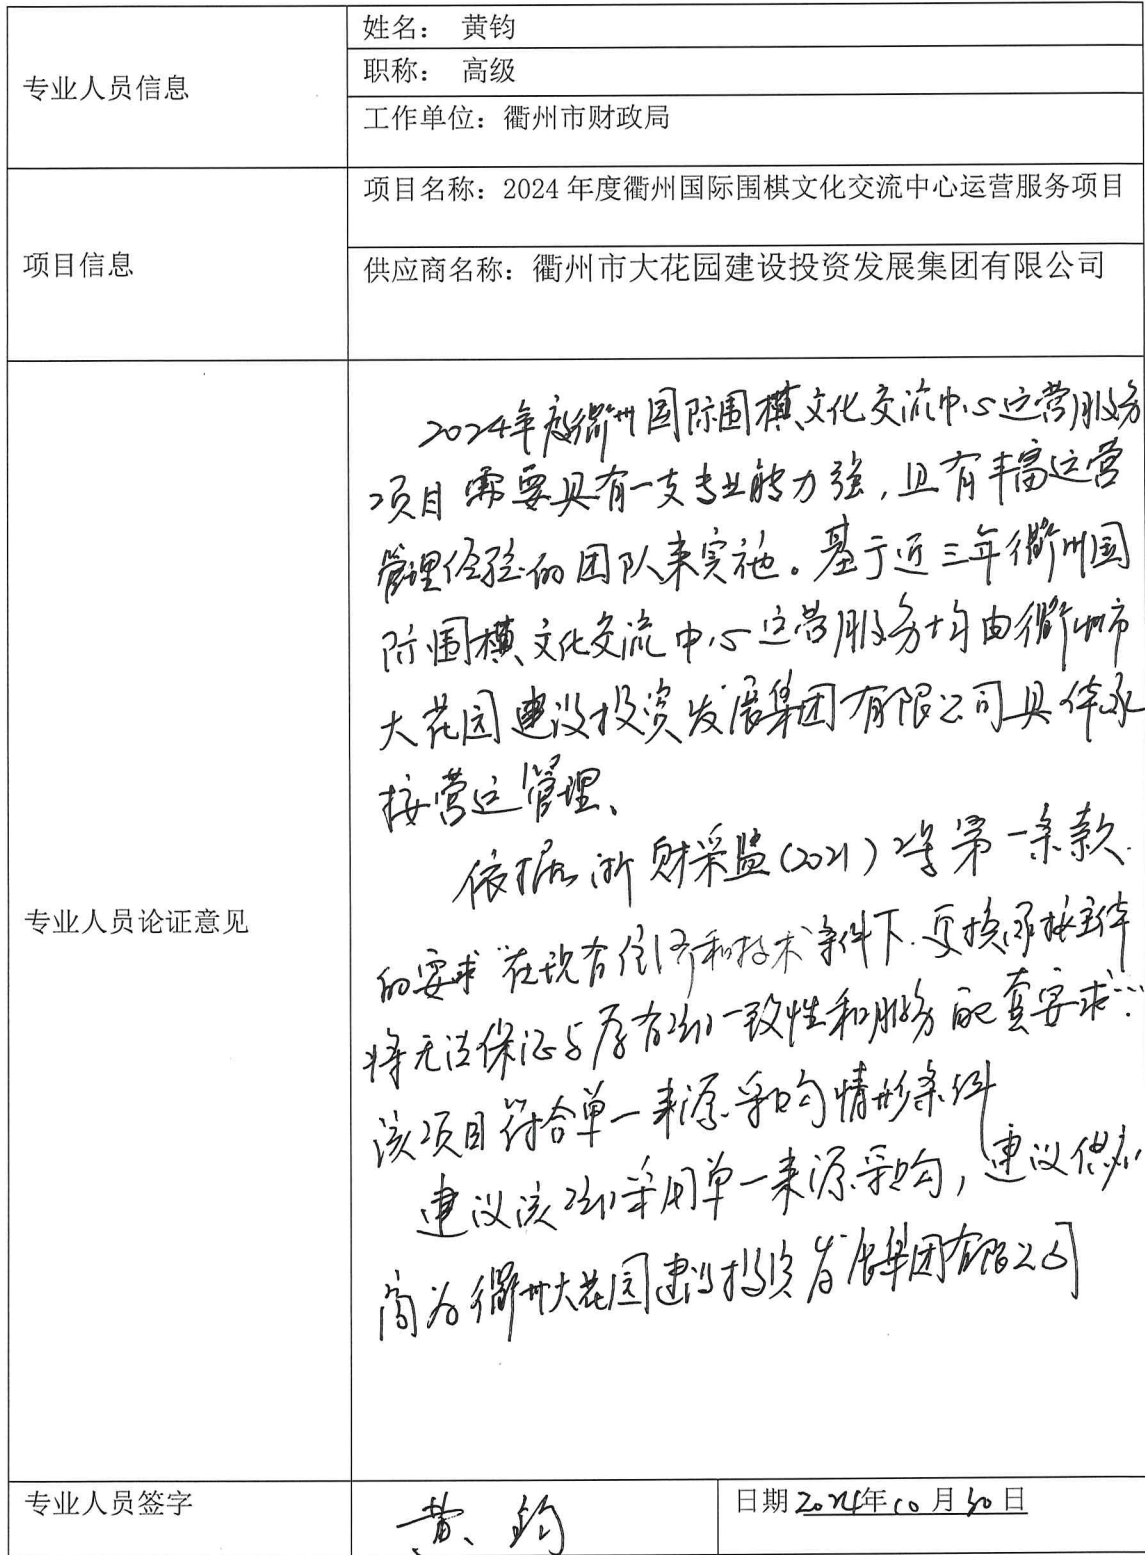 专业人员信息
姓名： 黄钧
职称： 高级
工作单位：衢州市财政局
项目信息
项目名称：2024 年度衢州国际围棋文化交流中心运营服务项目
供应商名称：衢州市大花园建设投资发展集团有限公司
专业人员论证意见
2024年度衢州国际围棋文化交流中心运营服务
项目需要具有一支专业能力强，且有丰富运营
管理经验的团队来实施。基于近三年衢州国
际围棋文化交流中心运营服务均由衢州市
大花园建设投资发展集团有限公司具体承
接营运管理、
依据浙财采监(2021)2号第一条款
的要求“在现有经济和技术条件下.更换承接主体
将无法保证与原有项目一致性和服务配套要求…
该项目符合单一来源采购情形条件
建议该项目采用单一来源采购，建议供应
商为衢州大花园建设投资发展集团有限公司
专业人员签字
黄钧
日期 2024年10月30日